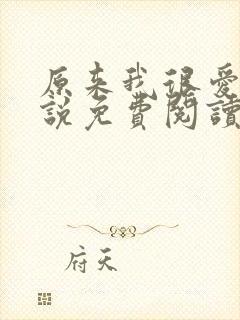 原来我很爱
說免費閱讀
府天